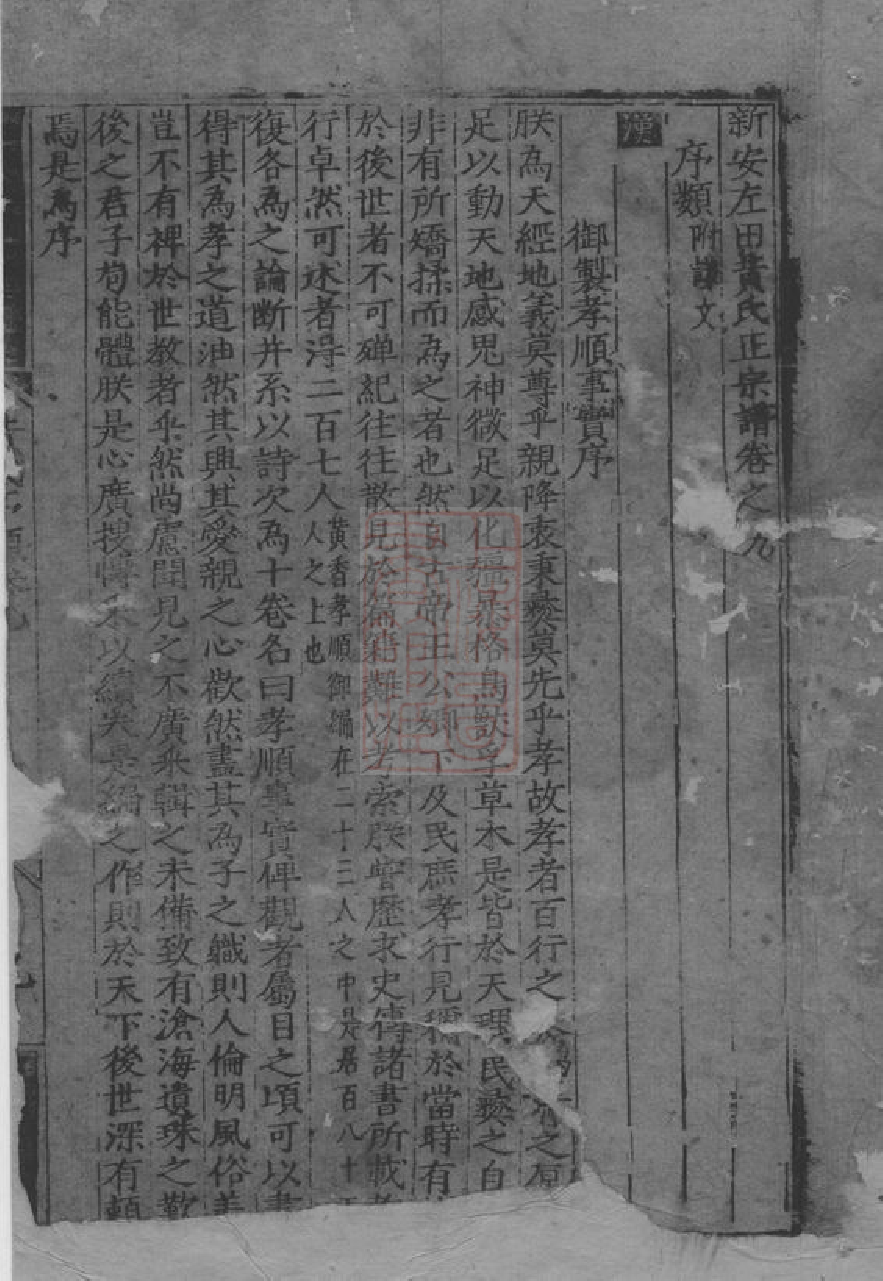 新安左田黃氏正宗譜卷之九
序類附讚文
漢
御製孝順事實序
朕為天經地義莫尊乎親降衷秉彝莫先乎孝故孝者百行之
足以動天地感鬼神微足以化強暴格鳥獸孚草木是皆於天理民彝之自
非有所矯揉而為之者也然自古帝王公卿下及民庶孝行見稱於當時有
於後世者不可殫紀往往散見於篇籍難以考索朕嘗歷求史傳諸書所載
行卓然可述者得二百七人黃香孝順御編在二十三人之中是居百八十
人之上也
復各為之論斷并系以詩次為十卷名曰孝順事實俾觀者屬目之頃可以
得其為孝之道油然其興其愛親之心歡然盡其為子之職則人倫明風俗美
豈不有裨於世教者乎然尚慮聞見之不廣采輯之未備致有滄海遺珠之歎
後之君子苟能體朕是心廣搜慱采以續夫是編之作則於天下後世深有賴
焉是為序